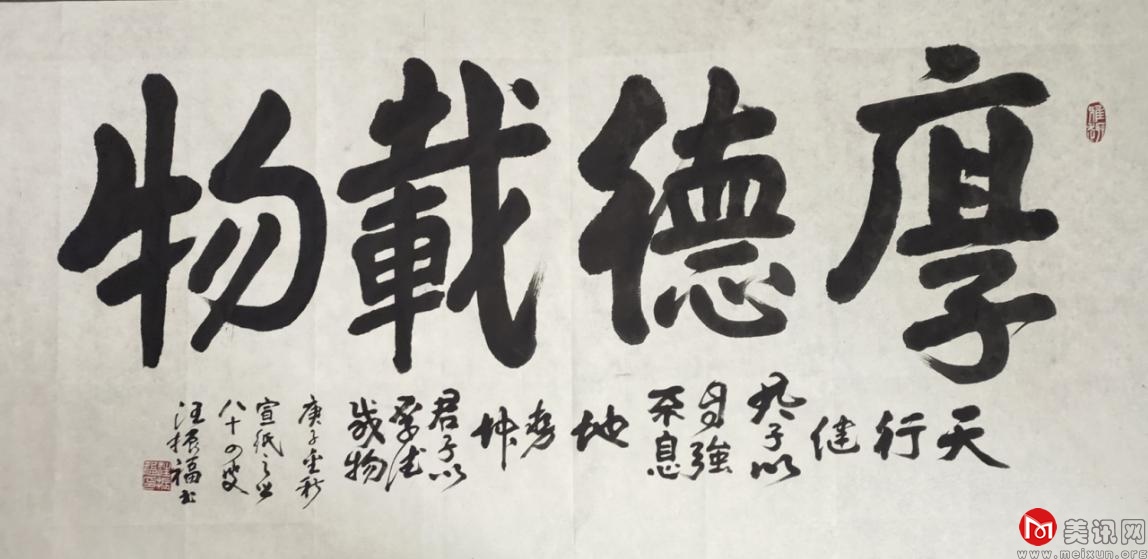 厚德載物
天
行
健
君子以
自強
不息
地
势
坤
君子以
厚德
載物
庚子金秋
宣紙之乡
八十四叟
汪振福书
美讯网
www.meixun.org